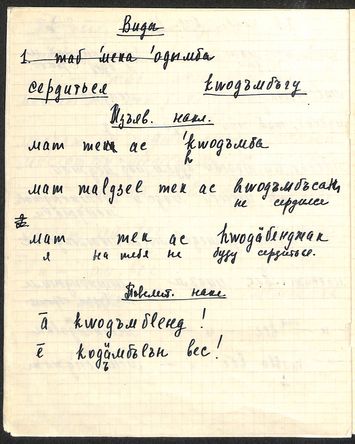 Виды
1. таб 'мека 'одымба
сердиться кwодъмбъгу
Изъяв. накл.
мат тек ас 'кwодъмба
мат маlдзеl тек ас кwодъмбъсаң
не сердился
мат тек ас кwодӓбенджак
я на тебя не буду сердиться.
Повелит. накл.
ā кwодъмбленд !
ē кодӓмбlен вес !